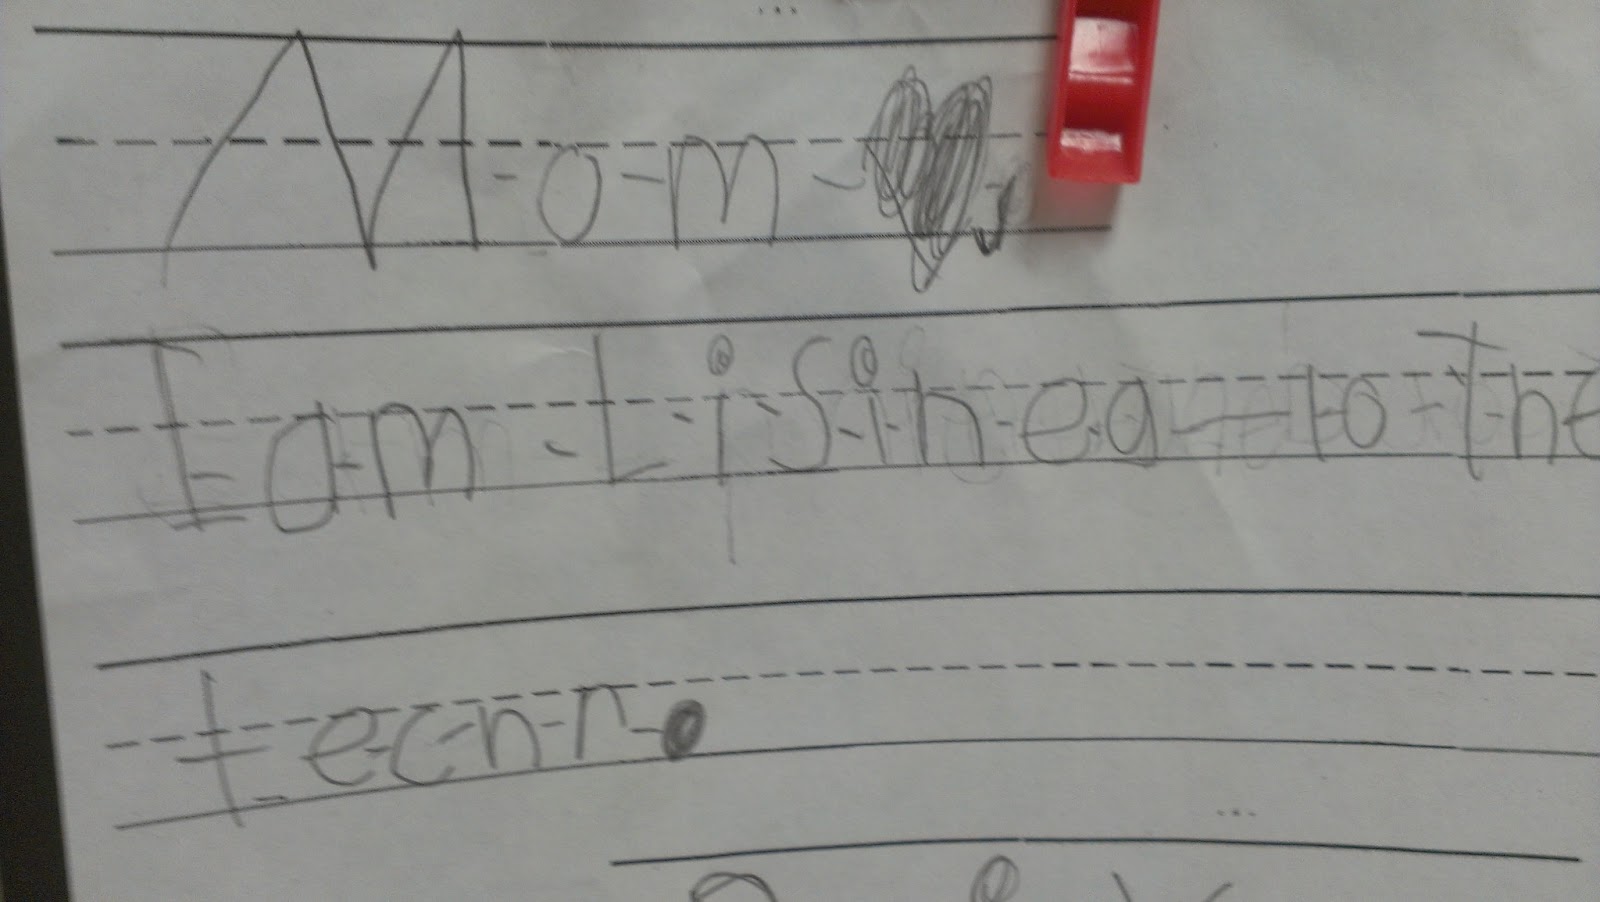 M-o-m-♥,
I-a-m-L-i-s-i-n-e-a-to-The
t-e-c-n-r-.